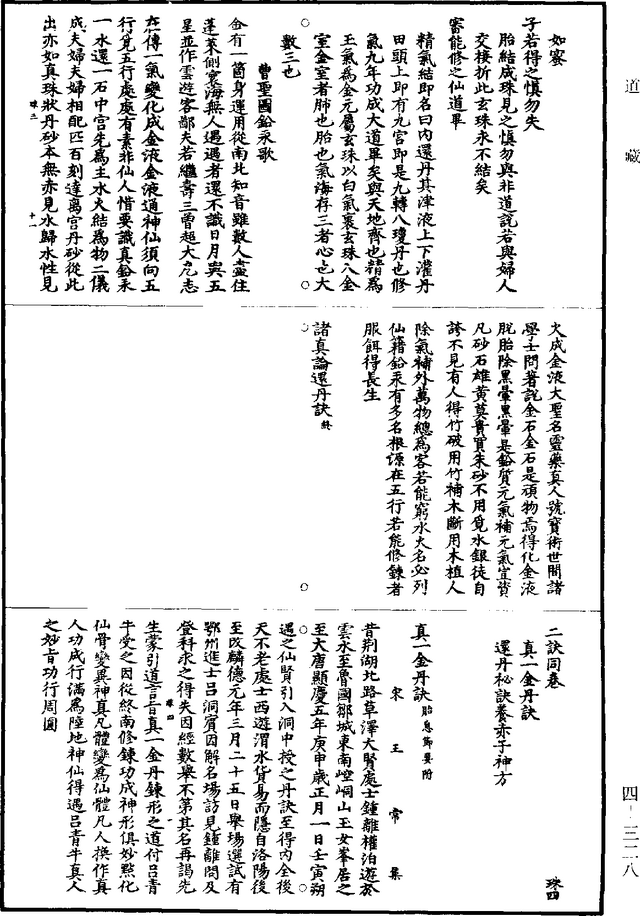 道藏
子若得之慎勿失
胎結成珠見之慎勿與非道說若與婦人
交接折此玄珠永不結矣
審能修之仙道畢
精氣結即名曰內還丹其津液上下灌丹
田頭上即有九宮即是九轉八瓊丹也修
氣九年功成大道畢矣與天地齊也精為
玉氣為金元屬玄珠以白氣裹玄珠入金
室金室者肺也胎也氣海存三者心也大
數三也
曹聖圖鉛汞歌
余有一箇身運用從南北知音雖數人盡住
蓬萊側寰海無人遇遇者還不識日月與五
星並作雲遊客鄙夫若繼壽三曾超大九志
在傳一氣變化成金液金液通神仙須向五
行覓五行處處有素非仙人惜要識真鉛汞
一水還一石中宮先為主水火結為物二儀
成夫婦夫婦相配匹百刻達离宮丹砂從此
出亦如真珠狀丹砂本無赤見水歸水性見
珠三 十一
火成金液大聖名靈藥真人號寶術世間諸
學士問著說金石金石是頑物焉得化金液
脫胎除黑暈黑暈是鉛質元氣補元氣宜資
凡砂石雄黃莫貴買朱砂不用覓水銀徒自
誇不見有人得竹破用竹補木斷用木植人
除氣補外萬物總為客若能窮水火名必列
仙籍鉛汞有多名根源在五行若能修鍊者
服餌得長生
諸真論還丹訣 終
二訣同卷
真一金丹訣
還丹秘訣養赤子神方
珠四
真一金丹訣 胎息節要附
宋王常集
昔荆湖北路草澤大賢處士鍾離權泊遊於
雲水至魯國鄒城東南崆峒山玉女峯居之
至大唐顯慶五年庚申歲正月一日壬寅朔
遇之仙賢引入洞中授之丹訣至得內全後
天不老處士西遊渭水貨易而隱自洛陽後
至改麟德元年三月二十五日舉場選試有
鄂州進士呂洞賓因解名場訪見鍾離問及
登科求之得失因經數舉不第其名再謁先
珠四
生蒙引道言旨真一金丹鍊形之道付呂青
牛受之因從終南修鍊功成神形俱妙點化
仙骨變異神真凡體變為仙體凡人換作真
人功成行滿為陸地神仙得遇呂青牛真人
之妙旨功行周圓
四-三二八